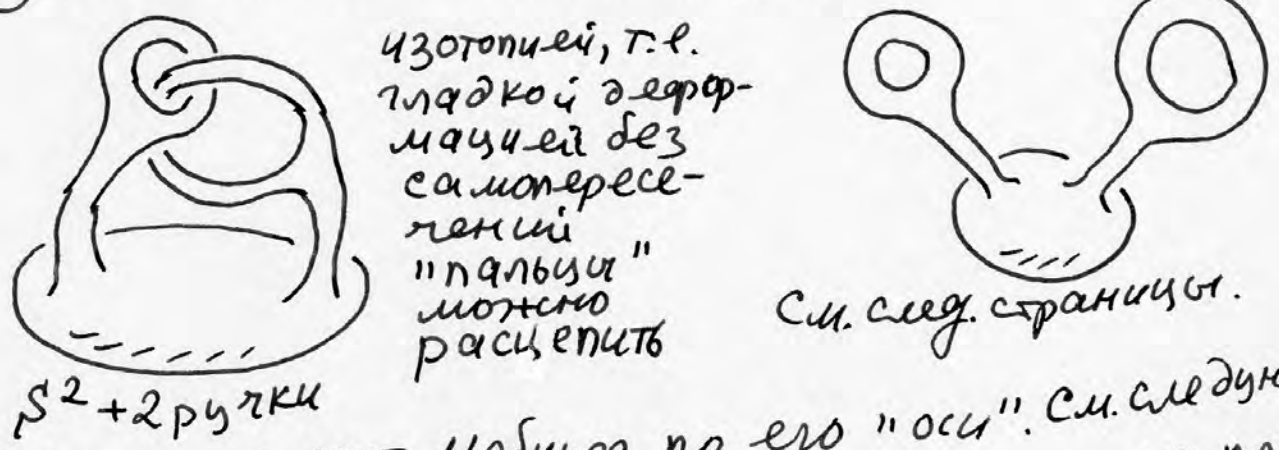 изотопией, т.е.
гладкой дефор-
мацией без
самопересе-
чений
"пальцы"
можно
расцепить
См. след. страницы.
S² + 2 ручки
по его "оси". См. следую